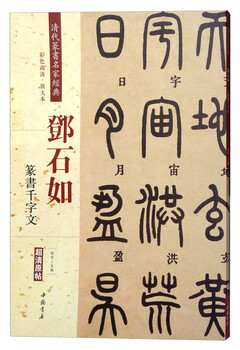 天地玄黃
宇宙洪荒
宇宙洪
日月盈昃
日月盈
清代篆書名家經典
彩色高清·放大本
鄧石如
篆書千字文
超清原帖
中國書店